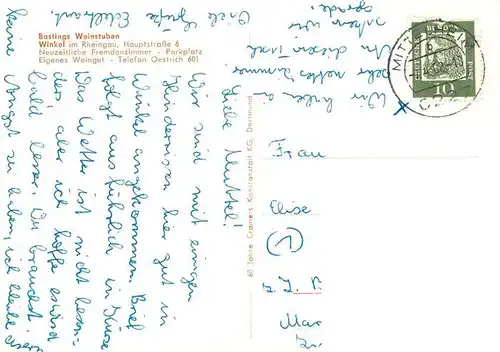 Bastings Weinstuben
Winkel im Rheingau, Hauptstraße 6
Neuzeitliche Fremdenzimmer - Parkplatz
Eigenes Weingut - Telefon Oestrich 601
Liebe Mutter!
Wir sind mit einigen
Hindernissen hier gut in
Winkel angekommen. Brief
folgt ausführlich in Kürze
Das Wetter ist nicht beson-
ders aber ich hoffe es wird
bald besser. Du brauchst
keine Angst zu haben, ich bleibe
Viele Grüße
Wir haben ein
sehr nettes Zimmer
An diesem Tisch
sitzen wir
gerade.
60 Jahre Cramers Kunstanstalt KG, Dortmund
DEUTSCHE BUNDESPOST
10
MITT
Frau
Elise
(1)
z. Z.
Mar